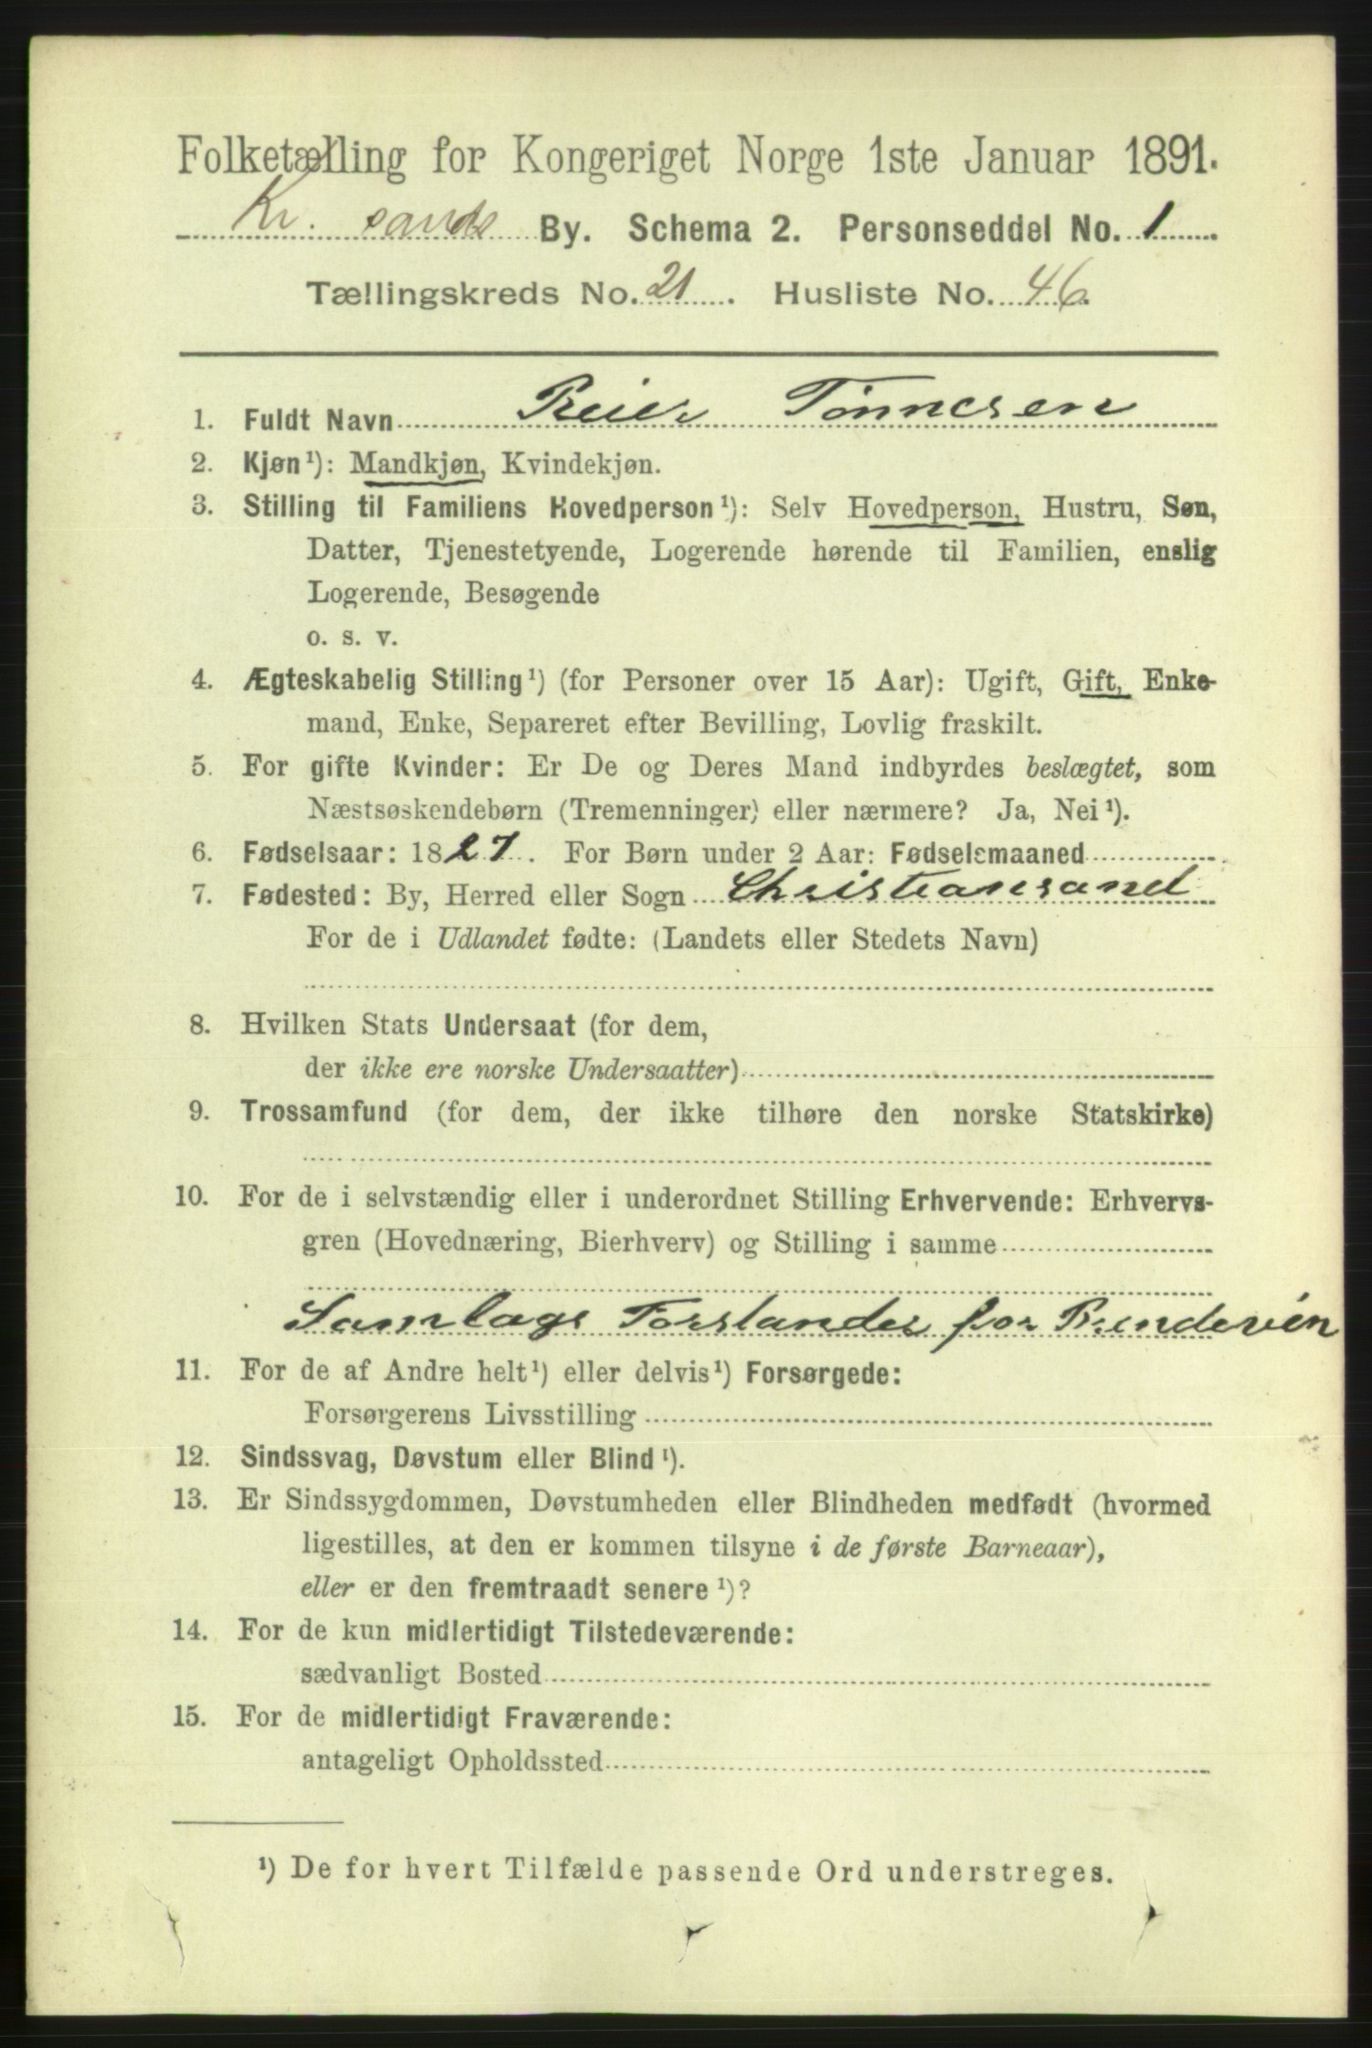 Folketælling for Kongeriget Norge 1ste Januar 1891.
Kr. sands By. Schema 2. Personseddel No. 1
Tællingskreds No. 21. Husliste No. 46.
1. Fuldt Navn Reier Tönnesen
2. Kjøn¹): Mandkjøn, Kvindekjøn.
3. Stilling til Familiens Hovedperson¹): Selv Hovedperson, Hustru, Søn,
Datter, Tjenestetyende, Logerende hørende til Familien, enslig
Logerende, Besøgende
o. s. v.
4. Ægteskabelig Stilling¹) (for Personer over 15 Aar): Ugift, Gift, Enke-
mand, Enke, Separeret efter Bevilling, Lovlig fraskilt.
5. For gifte Kvinder: Er De og Deres Mand indbyrdes beslægtet, som
Næstsøskendebørn (Tremenninger) eller nærmere? Ja, Nei¹).
6. Fødselsaar: 1827. For Børn under 2 Aar: Fødselsmaaned
7. Fødested: By, Herred eller Sogn Christiansand
For de i Udlandet fødte: (Landets eller Stedets Navn)
8. Hvilken Stats Undersaat (for dem,
der ikke ere norske Undersaatter)
9. Trossamfund (for dem, der ikke tilhøre den norske Statskirke)
10. For de i selvstændig eller i underordnet Stilling Erhvervende: Erhvervs-
gren (Hovednæring, Bierhverv) og Stilling i samme
Samlags Forstander for Brendevin
11. For de af Andre helt¹) eller delvis¹) Forsørgede:
Forsørgerens Livsstilling
12. Sindssvag, Døvstum eller Blind¹).
13. Er Sindssygdommen, Døvstumheden eller Blindheden medfødt (hvormed
ligestilles, at den er kommen tilsyne i de første Barneaar),
eller er den fremtraadt senere¹)?
14. For de kun midlertidigt Tilstedeværende:
sædvanligt Bosted
15. For de midlertidigt Fraværende:
antageligt Opholdssted
¹) De for hvert Tilfælde passende Ord understreges.